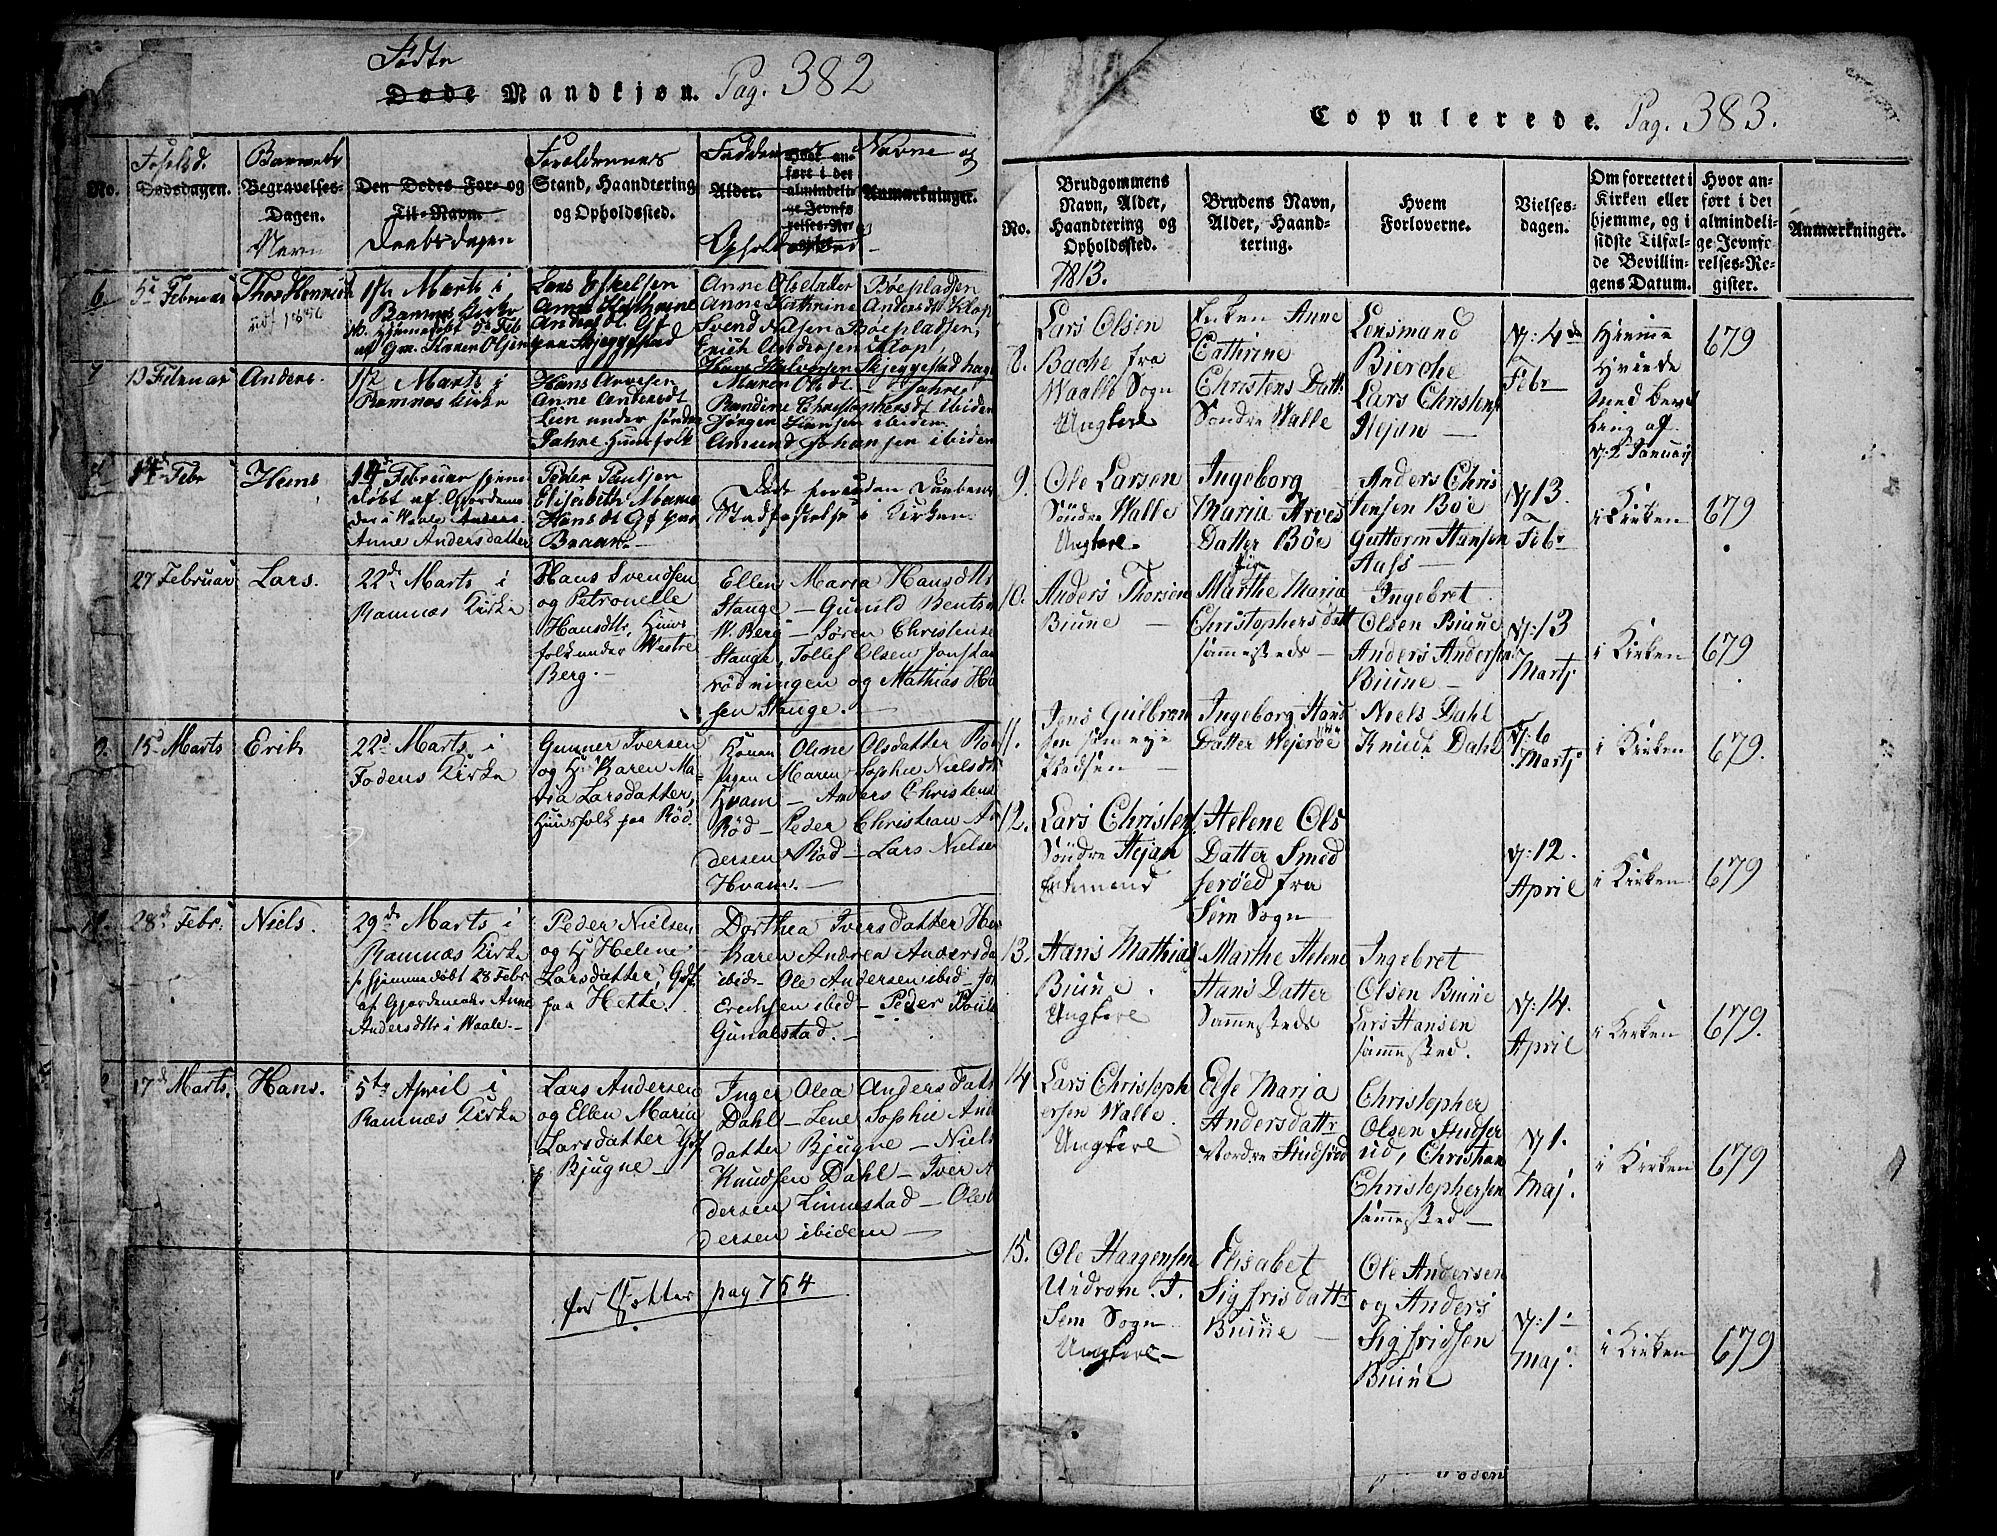 Fødte
Døde Mandkjøn. Pag. 382
No.
Fødselsd.
Dødsdagen.
Barnets
Begravelses-
Dagen.
Navn
Den Dødes For- og
Til-Navn.
Daabsdagen
Foreldrenes
Stand, Haandtering
og Opholdssted.
Fadderne
Navne og
Alder.
Hvor an-
ført i det
almindeli-
ge Jevnfø-
relses-Re-
gister.
Anmærkninger.
Ophold
6
5te Februar
Thor Henrich
1/2 Marts i
Ramnes Kirke
af Gm. Karen Olsen
Lars Eskelsen
Anne Kathrine
Andersdt
paa Skjeggestad
Anne Olsdatter Bøepladsen
Anne Kathrine Andersdt Klop
Svend Nilsen Bøepladsen,
Erich Andersen Klop,
Hans Halvorsen Skjeggestadhage
7
13 Februar
Anders.
1/2 Marts i
Ramnes Kirke
Hans Arvesen
Anne Andersdt
Lien under søndre
Jahre Huusfolk
Maren Olsdt Jahre
Randine Christophersdt ibidem
Jørgen Hansen ibidem
Amund Johansen ibidem
14d Febr
Hans
14d Februar hjemme
døbt af Gjordemo
der i Waale
Anne Andersdatter
Peder Paulsen
Elisabeth Marie
Hansdt Gf paa
Braan.
Døde forinden Daabens
Stadfæstelse i Kirken.
27 Februar
Lars.
22d Marts i
Ramnæs Kirke
Hans Svendsen
og Petronelle
Hansdttr, Huus
folk under Westre
Berg.
Ellen Maria Hansdttr
Stange – Gunild Bentsen
W. Berg – Søren Christense
Stange, Tollef Olsen
rødningen og Mathias Ha
sen Stange.
15d Marts
Erik
22d Marts i
Fodens Kirke
Gunner Iversen
og H: Karen Ma-
ria Larsdatter,
Huusfolk paa Rød.
Konen Oline Olsdatter Rød
Pigen Maren Sophie Nielsdtr
Hvam – Anders Christens
Rød – Peder Christian An
dersen Rød – Lars Nielsen
Hvam.
28d Febr.
Niels.
29d Marts i
Ramnæs Kirke
Hjemmedøbt 28 Febr
af Gjordemoder Anne
Andersdttr i Waale.
Peder Nielsen
og H: Helene
Larsdatter, Gdf
paa Hette.
Dorthea Iversdatter He
Karen Andrea Andersda
ibid – Ole Andersen ibid –
Erichsen ibid – Peder Poule
Gunalstad.
17d Marts.
Hans.
5te April i
Ramnæs Kirke
Lars Andersen
og Ellen Maria
Larsdatter Gdf
p Bjugne
Inger Olea Anders Datt
Dahl – Lene Sophie And
datter Bjugne – Niels
Knudsen Dahl – Iver An
dersen Linnestad – Ole
dersen ibidem
for Døtter pag 754
Copulerede. Pag. 383.
No.
Brudgommens
Navn, Alder,
Haandtering og
Opholdssted.
1813.
Brudens Navn,
Alder, Haand-
tering.
Hvem
Forloverne.
Vielses-
dagen.
Om forrettet i
Kirken eller
hjemme, og i
sidste Tilfæl-
de Bevillin-
gens Datum.
Hvor an-
ført i det
almindeli-
ge Jevnfø-
relses-Re-
gister.
Anmærkninger.
8.
Lars Olsen
Bache fra
Waalle Sogn
Ungkarl
Enken Anne
Cathrine
Christens Dattr
Søndre Walle
Lensmand
Bierche
Lars Christens
Hejan
D: 4de
Febr
Hiemme
Hviede
med Bevil
ling af
D: 2 January
679
9.
Ole Larsen
Søndre Walle
Ungkarl
Ingeborg
Maria Arves
Datter Bøe
Anders Chris
tensen Bøe
Guttorm Hansen
Aass
D 13.
Febr
i Kirken
679
10.
Anders Thorsen
Biune
Pige
Marthe Maria
Christophersdatt
sammesteds
Ingebret
Olsen Biune
Anders Andersen
Biune
D: 13
Martj
i Kirken
679
11.
Jens Gulbran
sen
Ingeborg Hans
Datter Wejerøe
Niels Dahl
Knud Dahl
D: 6
Martj
i Kirken
679.
12.
Lars Christens
Søndre Hejan
Enkemand
Helene Ols
Datter Smed
serøed fra
Sem Sogn
D: 12.
April
i Kirken
679
13.
Hans Mathias
Biune.
Ungkarl
Marthe Helene
Hans Datter
Sammesteds
Ingebret
Olsen Biune
Lars Hansen
sammested.
D: 14.
April
i Kirken
679.
14
Lars Christoph
ersen Walle
Ungkarl
Else Maria
Andersdattr
Nordre Studsrød
Christopher
Olsen Studser
ud, Christian
Christophersen
sammested
D 1.
Maj.
i Kirken
679
15.
Ole Haagensen
Undrom. T.
Sem Sogn
Ungkarl
Elisabet
Sigfrisdattr
Buine
Ole Andersen
og Anders
Sigfridsen
Buine
D: 1
Maj.
i Kirken
679